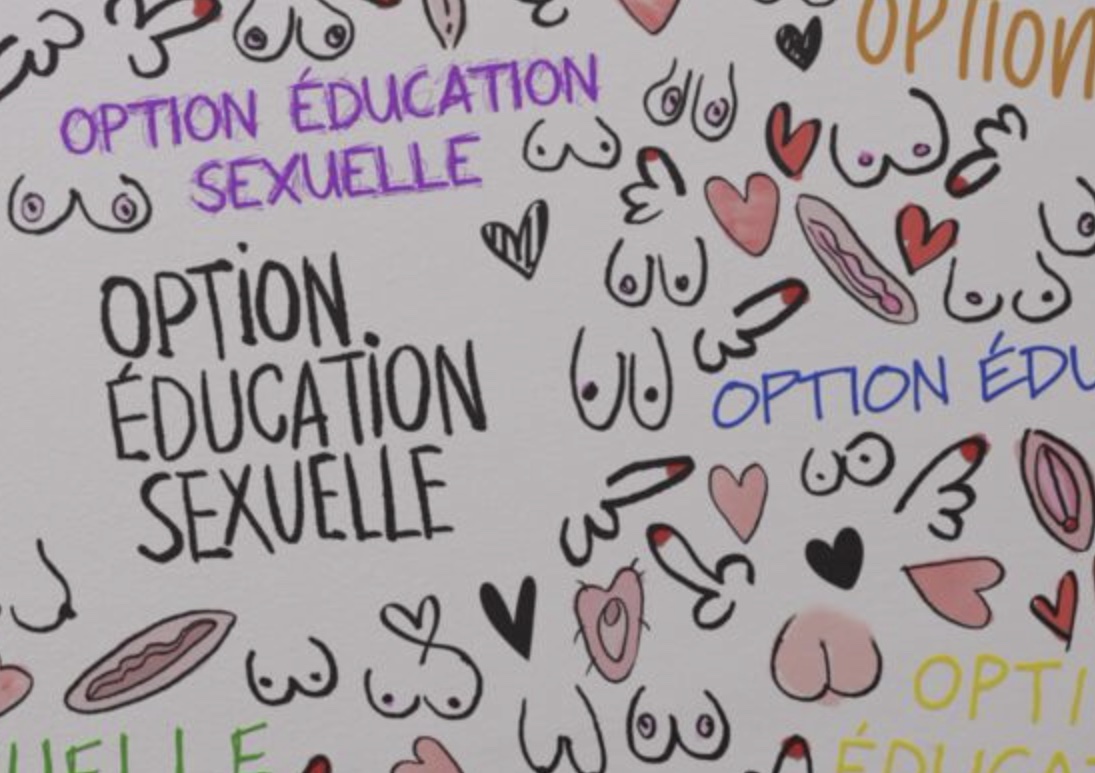 OPTION
OPTION ÉDUCATION
SEXUELLE
OPTION
ÉDUCATION
SEXUELLE
OPTION ÉDU
UELLE
OPTI
ÉDUCAT